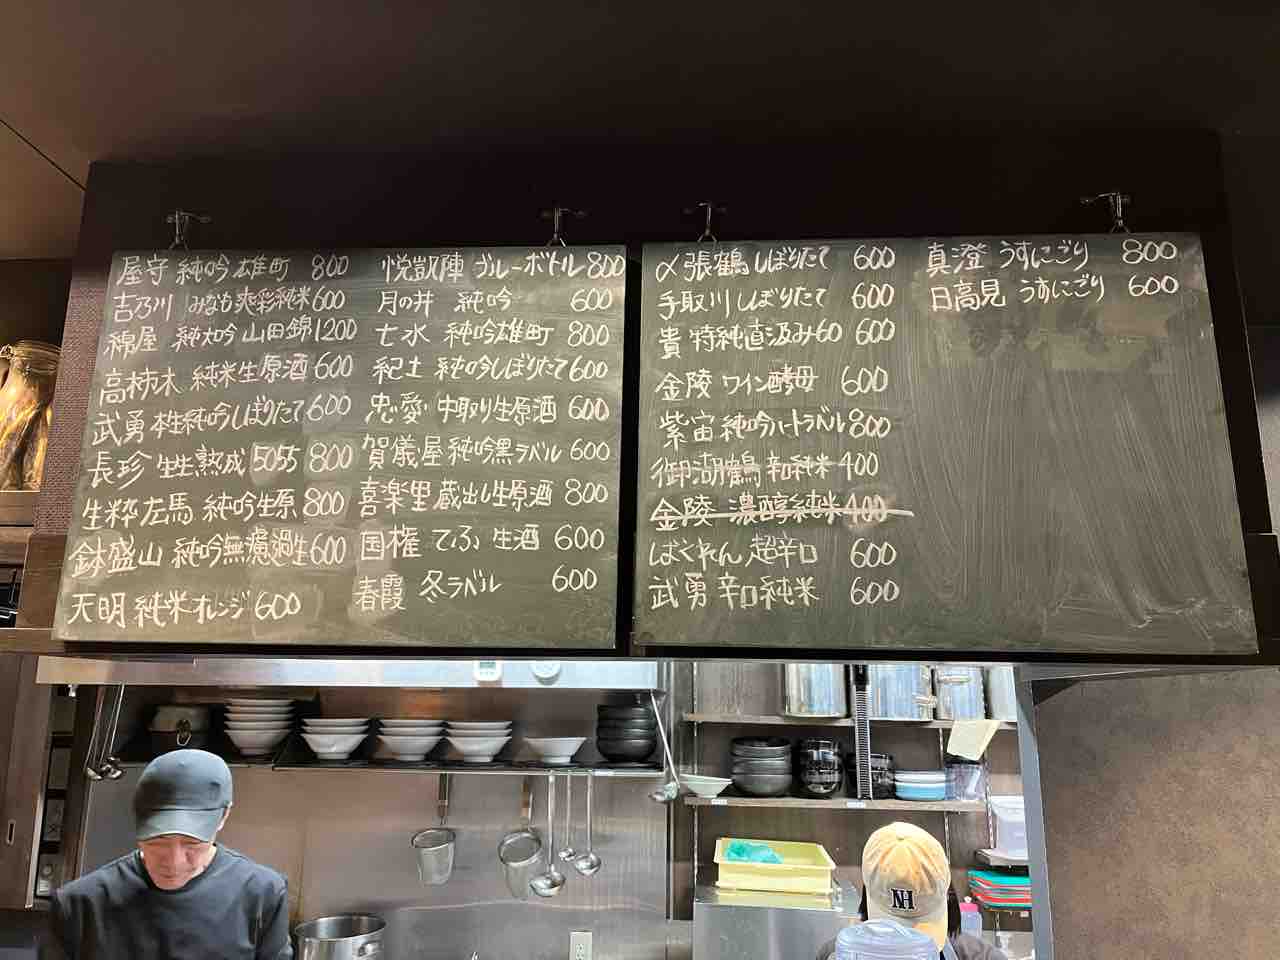 屋守 純吟 雄町 800
吉乃川 みなも 爽彩純米 600
綿屋 純大吟 山田錦 1200
高柿木 純米生原酒 600
武勇 本生純吟しぼりたて 600
長珍 生生熟成 5055 800
生粋左馬 純吟生原 800
鉢盛山 純吟無濾過生 600
天明 純米オレンジ 600
悦凱陣 ブルーボトル 800
月の井 純吟 600
七水 純吟雄町 800
紀土 純吟しぼりたて 600
忠愛 中取り生原酒 600
賀儀屋 純吟黒ラベル 600
喜楽里 蔵出し生原酒 800
国権 てふ 生酒 600
春霞 冬ラベル 600
〆張鶴 しぼりたて 600
手取川 しぼりたて 600
貴 特純直汲み60 600
金陵 ワイン酵母 600
紫宙 純吟ハートラベル 800
御湖鶴 辛口純米 400
金陵 濃醇純米 400
ばくれん 超辛口 600
武勇 辛口純米 600
真澄 うすにごり 800
日高見 うすにごり 600
NH